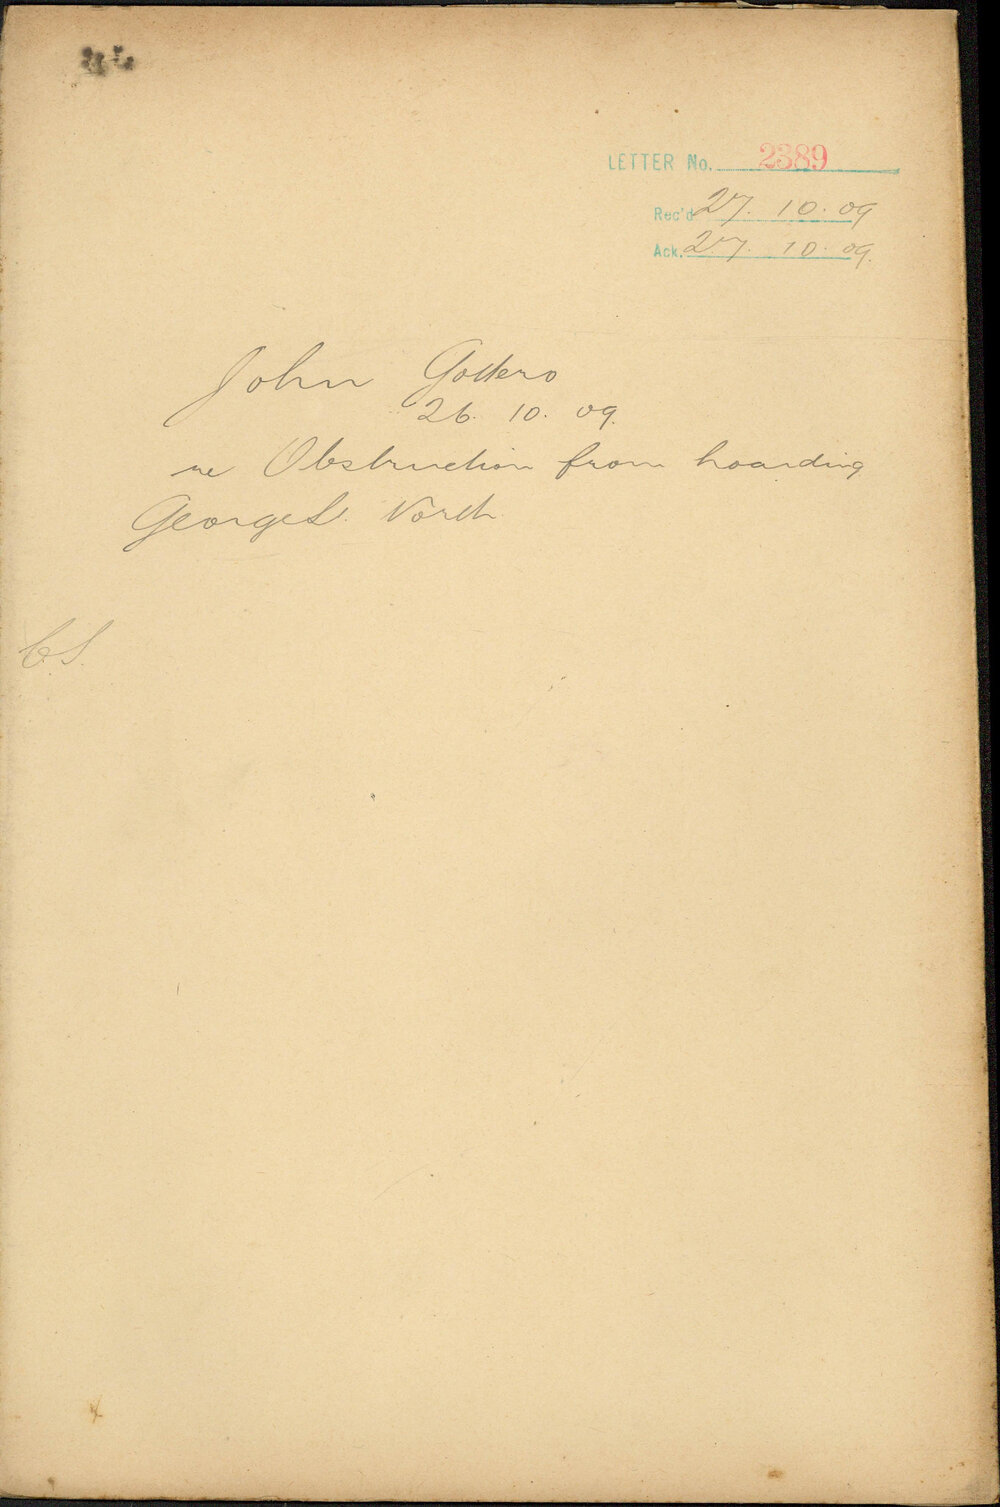 LETTER No. 2389
Rec'd 27. 10. 09
Ack. 27. 10. 09.
John
26. 10. 09.
re Obstruction from hoarding
George St. North